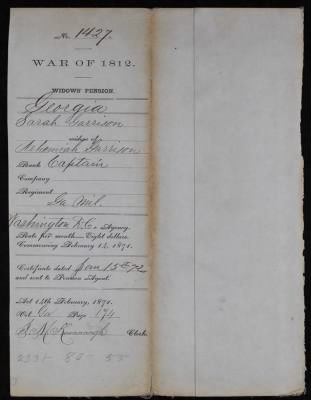 No. 1427.
WAR OF 1812.
WIDOWS' PENSION.
Georgia
Sarah Garrison
widow of
Nehemiah Garrison
Rank Captain
Company
Regiment
Ga Mil.
Washington D.C. Agency.
Rate per month—Eight dollars.
Commencing February 14, 1871.
Certificate dated Jan 15th 72
and sent to Pension Agent.
Act 14th February, 1871.
Vol. Ga Page 174
Kavanaugh Clerk.
80 - 55